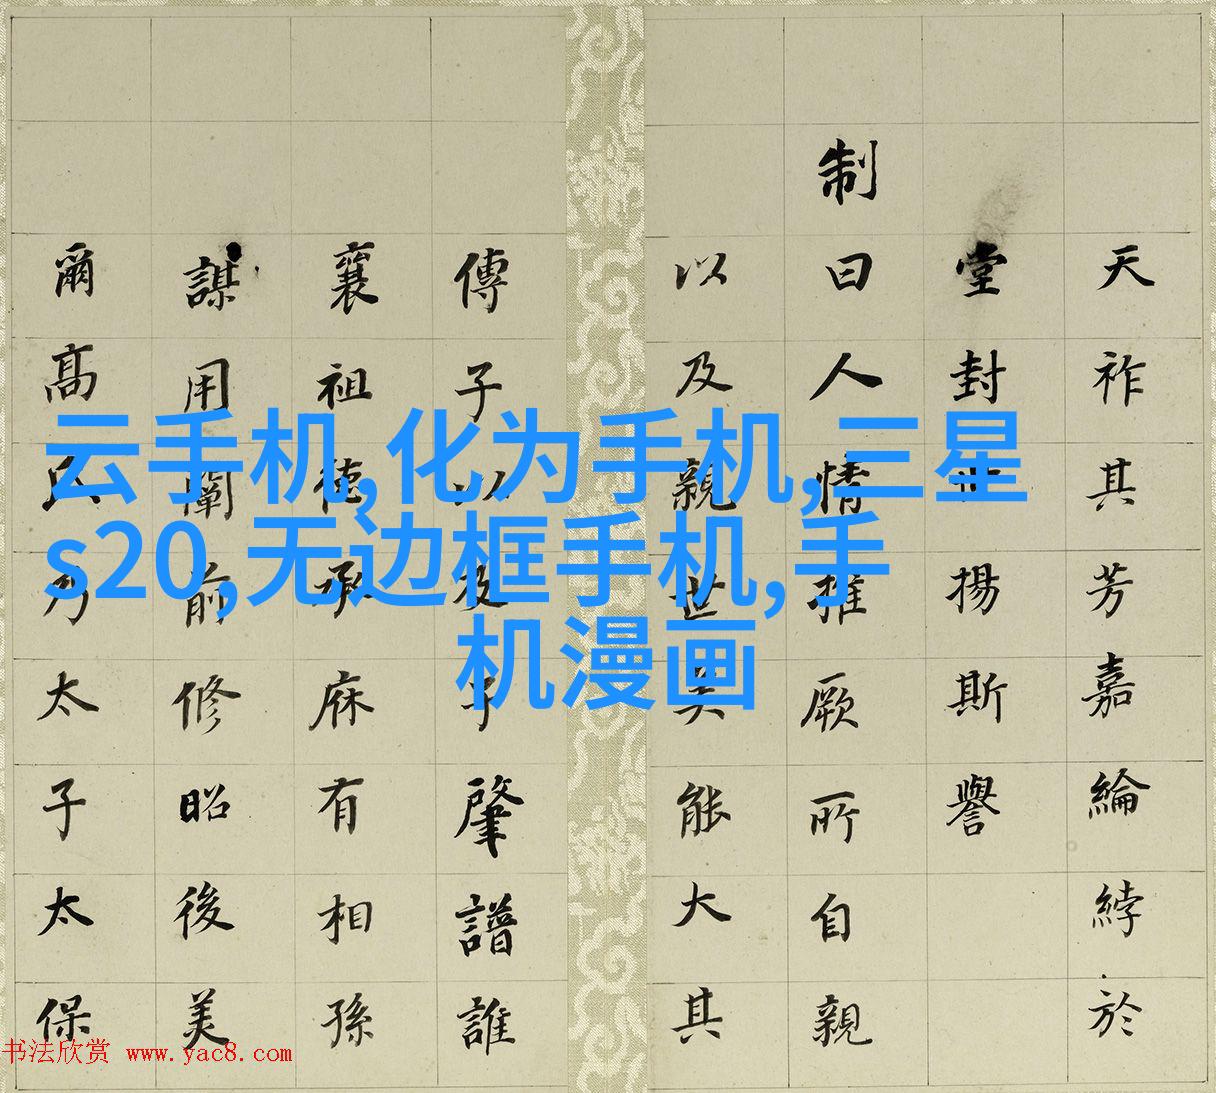 天祚其芳嘉綸綍於
堂封揚斯譽
制曰人情推厥所自親
以及親世美能大其
傳子以及子肇譜誰
襄祖德承庥有相孫
謀用闡前修昭後美
爾高氏乃太子太保
云手机,化为手机,三星
s20,无边框手机,手
机漫画
书法欣赏 www.yac8.com